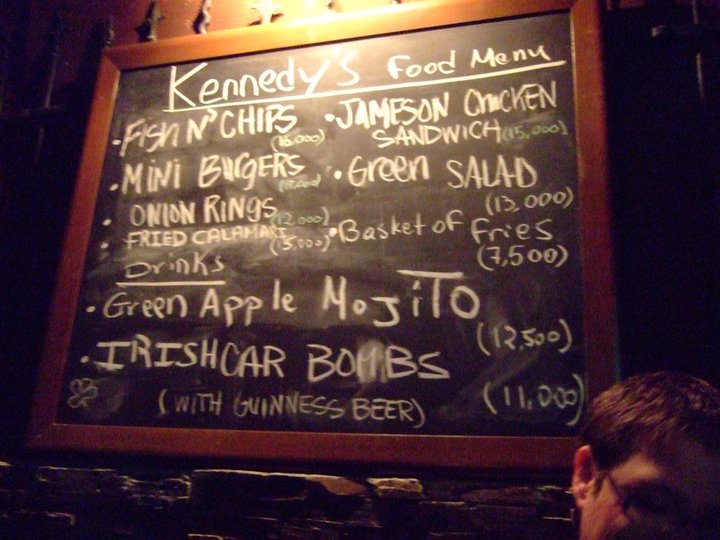 Kennedy's Food Menu
• FISH N' CHIPS
• MINI BURGERS
• ONION RINGS (12,000)
• FRIED CALAMARI (15,000)
• JAMESON CHICKEN
SANDWICH (15,000)
• Green SALAD
(13,000)
• Basket of Fries
(7,500)
Drinks
• Green Apple MOJiTO
(12,500)
• IRISH CAR BOMBS
(WITH GUINNESS BEER) (11,000)